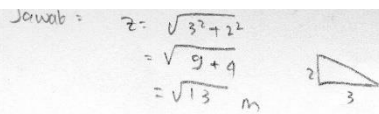 Jawab : z = √3² + 2²
= √9 + 4
= √13 m
2
3